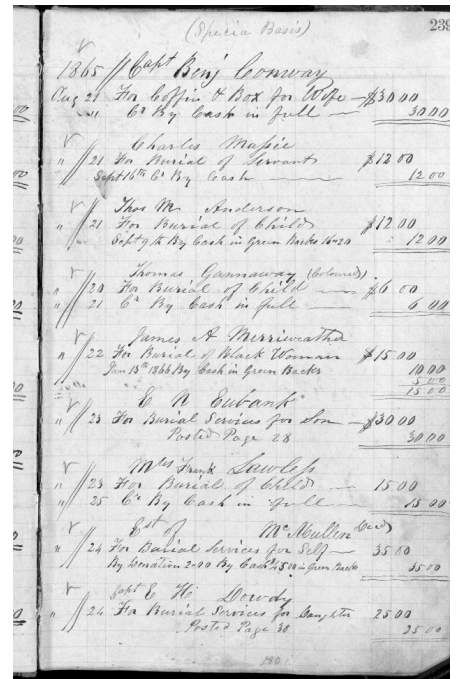 (Specia Basis)
239
1865 // Capt Benj Conway
Aug 21 For Coffin & Box for Wife — $30 00
" " Cr By Cash in full — 30 00
Charles Massie
" // 21 For Burial of Servant $12 00
Sept 16th Cr By Cash 12 00
Thos M Anderson
" // 21 For Burial of Child $12 00
Sept 9th By Cash in Green Backs 12 00
Thomas Gannaway (Coloured)
" // 20 For Burial of Child — $6 00
" 21 Cr By Cash in full — 6 00
James A Merriweather
" // 22 For Burial of Black Woman $15 00
Jan 13th 1866 By Cash in Green Backs 10 00
5 00
15 00
E N Eubank
" // 23 For Burial Services for Son — $30 00
Posted Page 28 30 00
Mrs Frank Lawless
" // 23 For Burial of Child — 15 00
" 25 Cr By Cash in full — 15 00
Est of McMullen Decd
" // 24 For Burial Services for Self — 35 00
By Donation By Cash in Green Backs 35 00
Capt E H Dowdy
" // 24 For Burial Services for Daughter 25 00
Posted Page 30 25 00